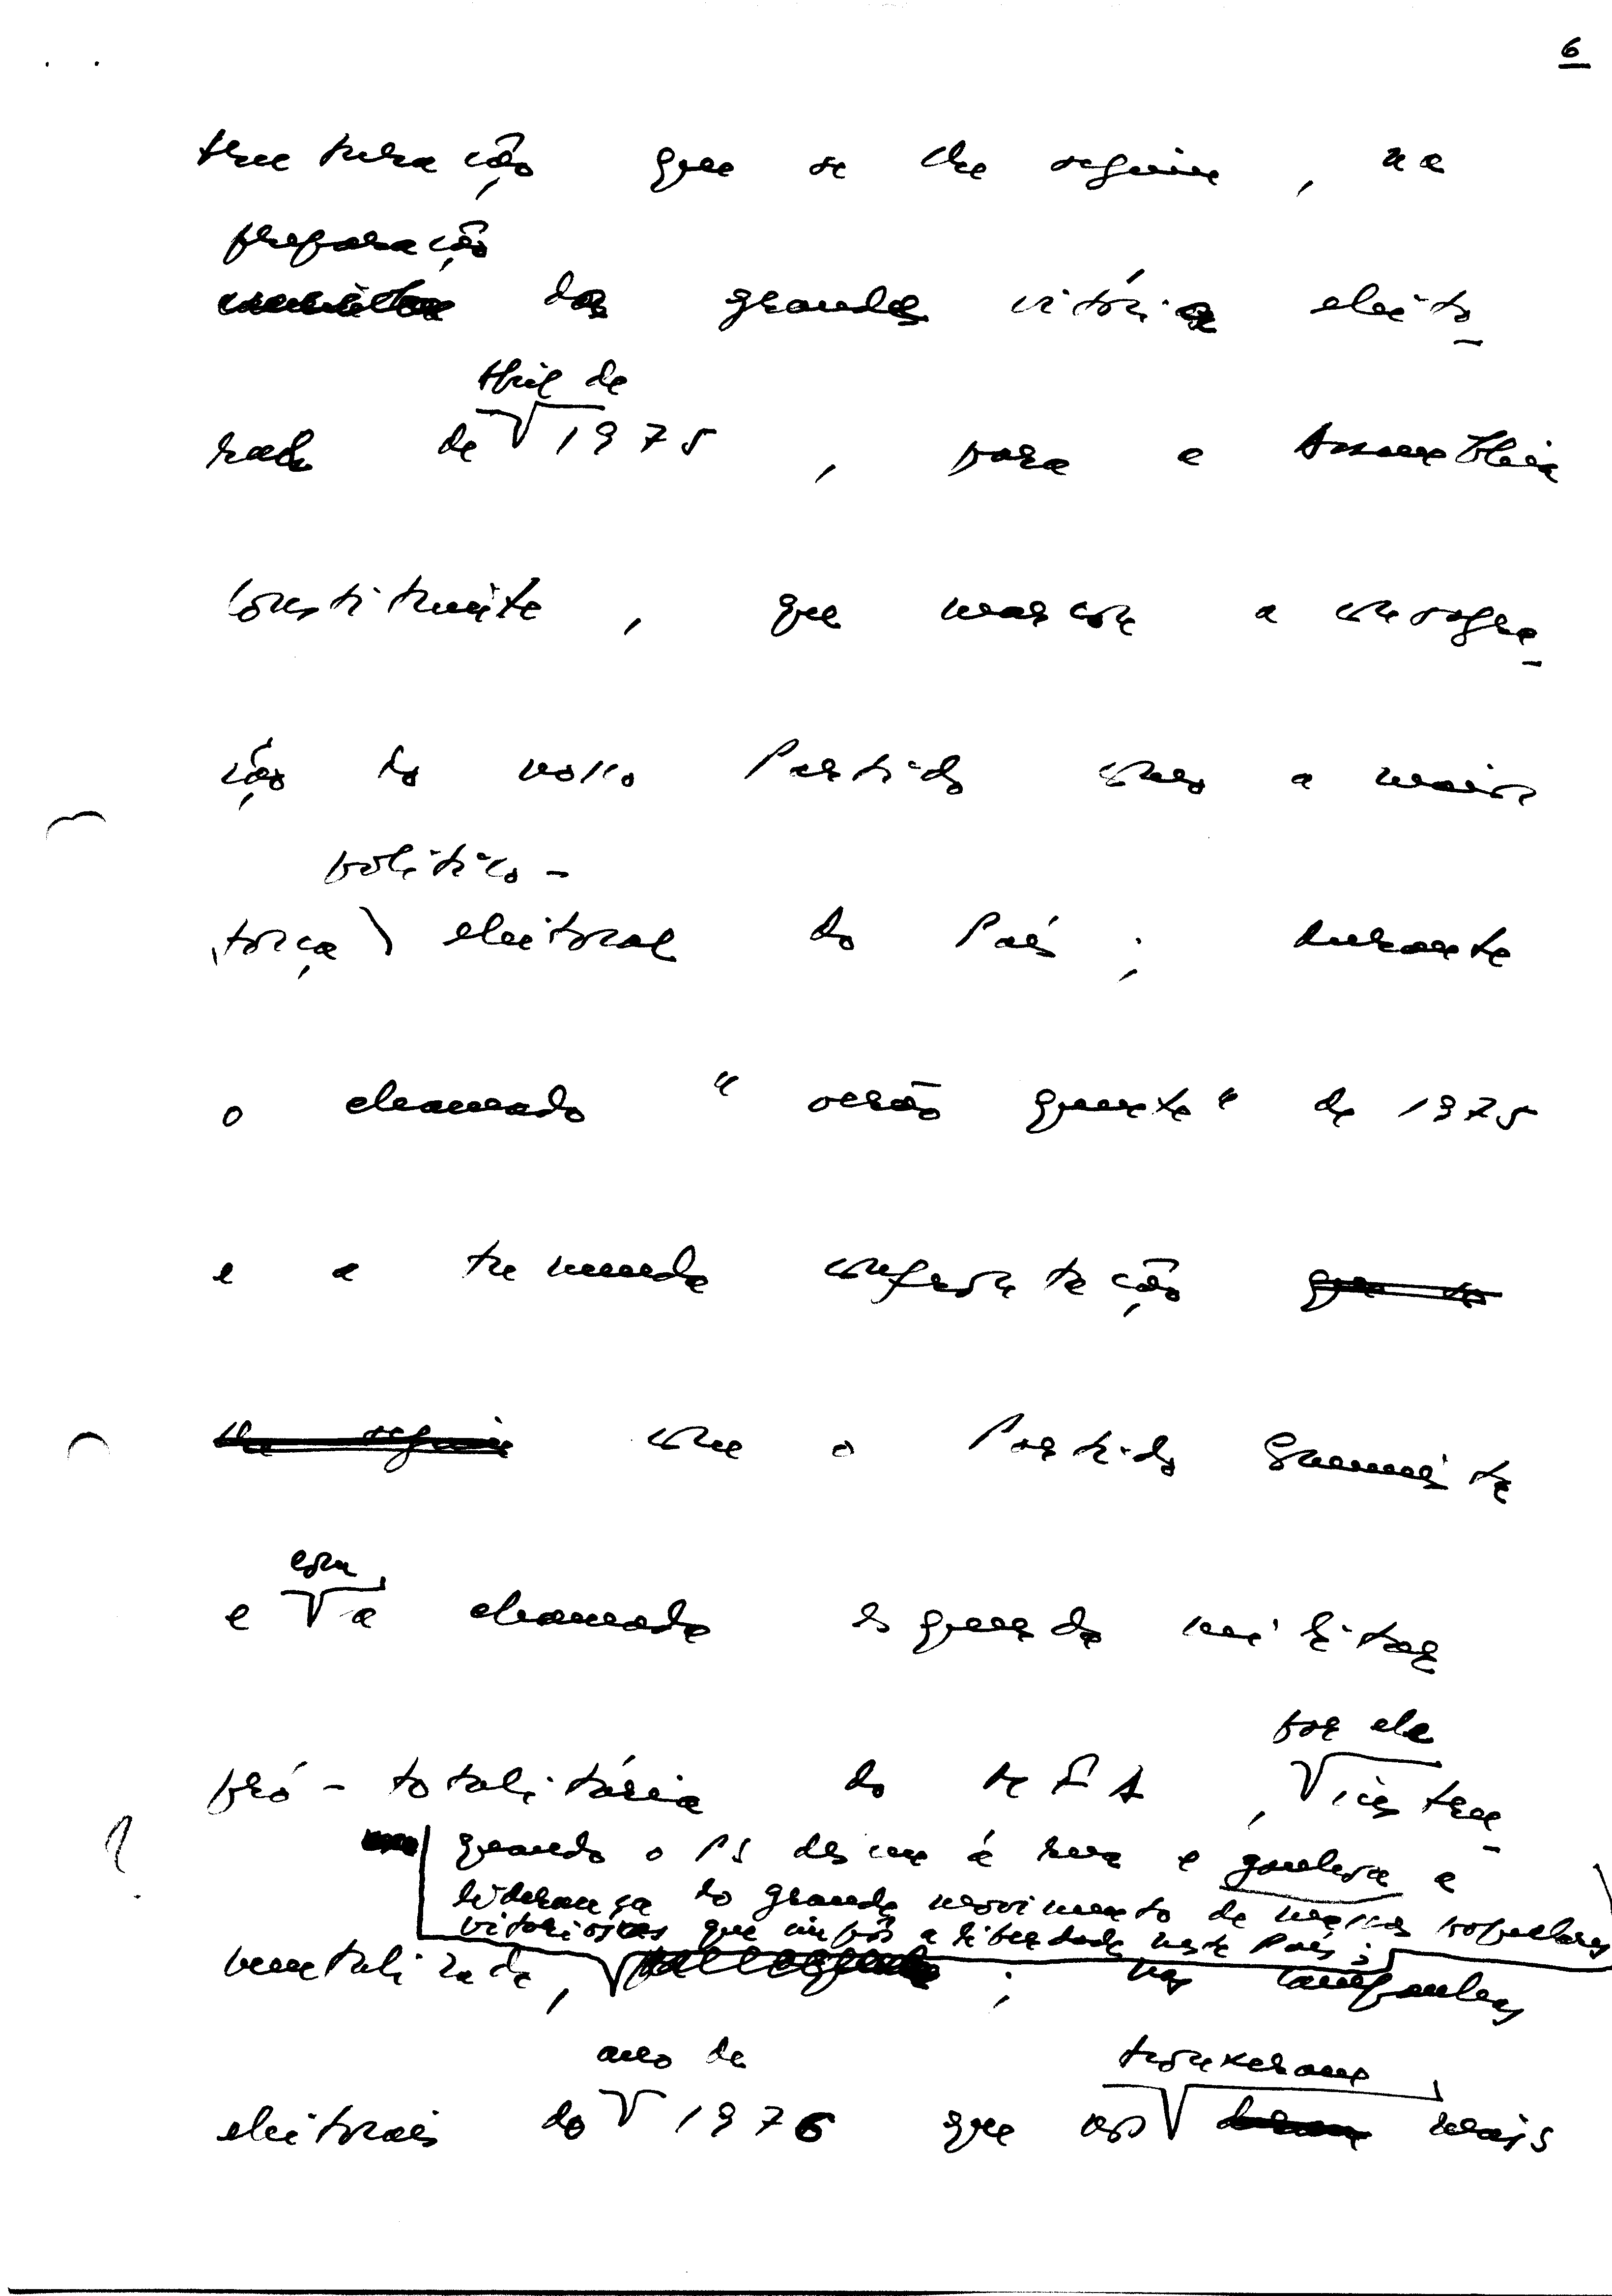 6
truturação que se lhe seguiu, na
preparação
da grande vitória eleito-
ral de 1975, para a Assembleia
Abril de
Constituinte, que marcou a consagra-
ção do nosso Partido como a maior
político-
força eleitoral do País; durante
o chamado "verão quente" de 1975
e a tremenda confrontação que se
lhe seguiu com o Partido Comunista
com
e a chamada esquerda militar
por ele
pró-totalitária do MFA, instru-
quando o PS desceu à rua e ganhou a
liderança do grande movimento de massas populares
vitorioso que impôs a liberdade neste País;
mentalizada, ; nas campanhas
ano de
trouxeram
eleitorais do 1976 que nos mais